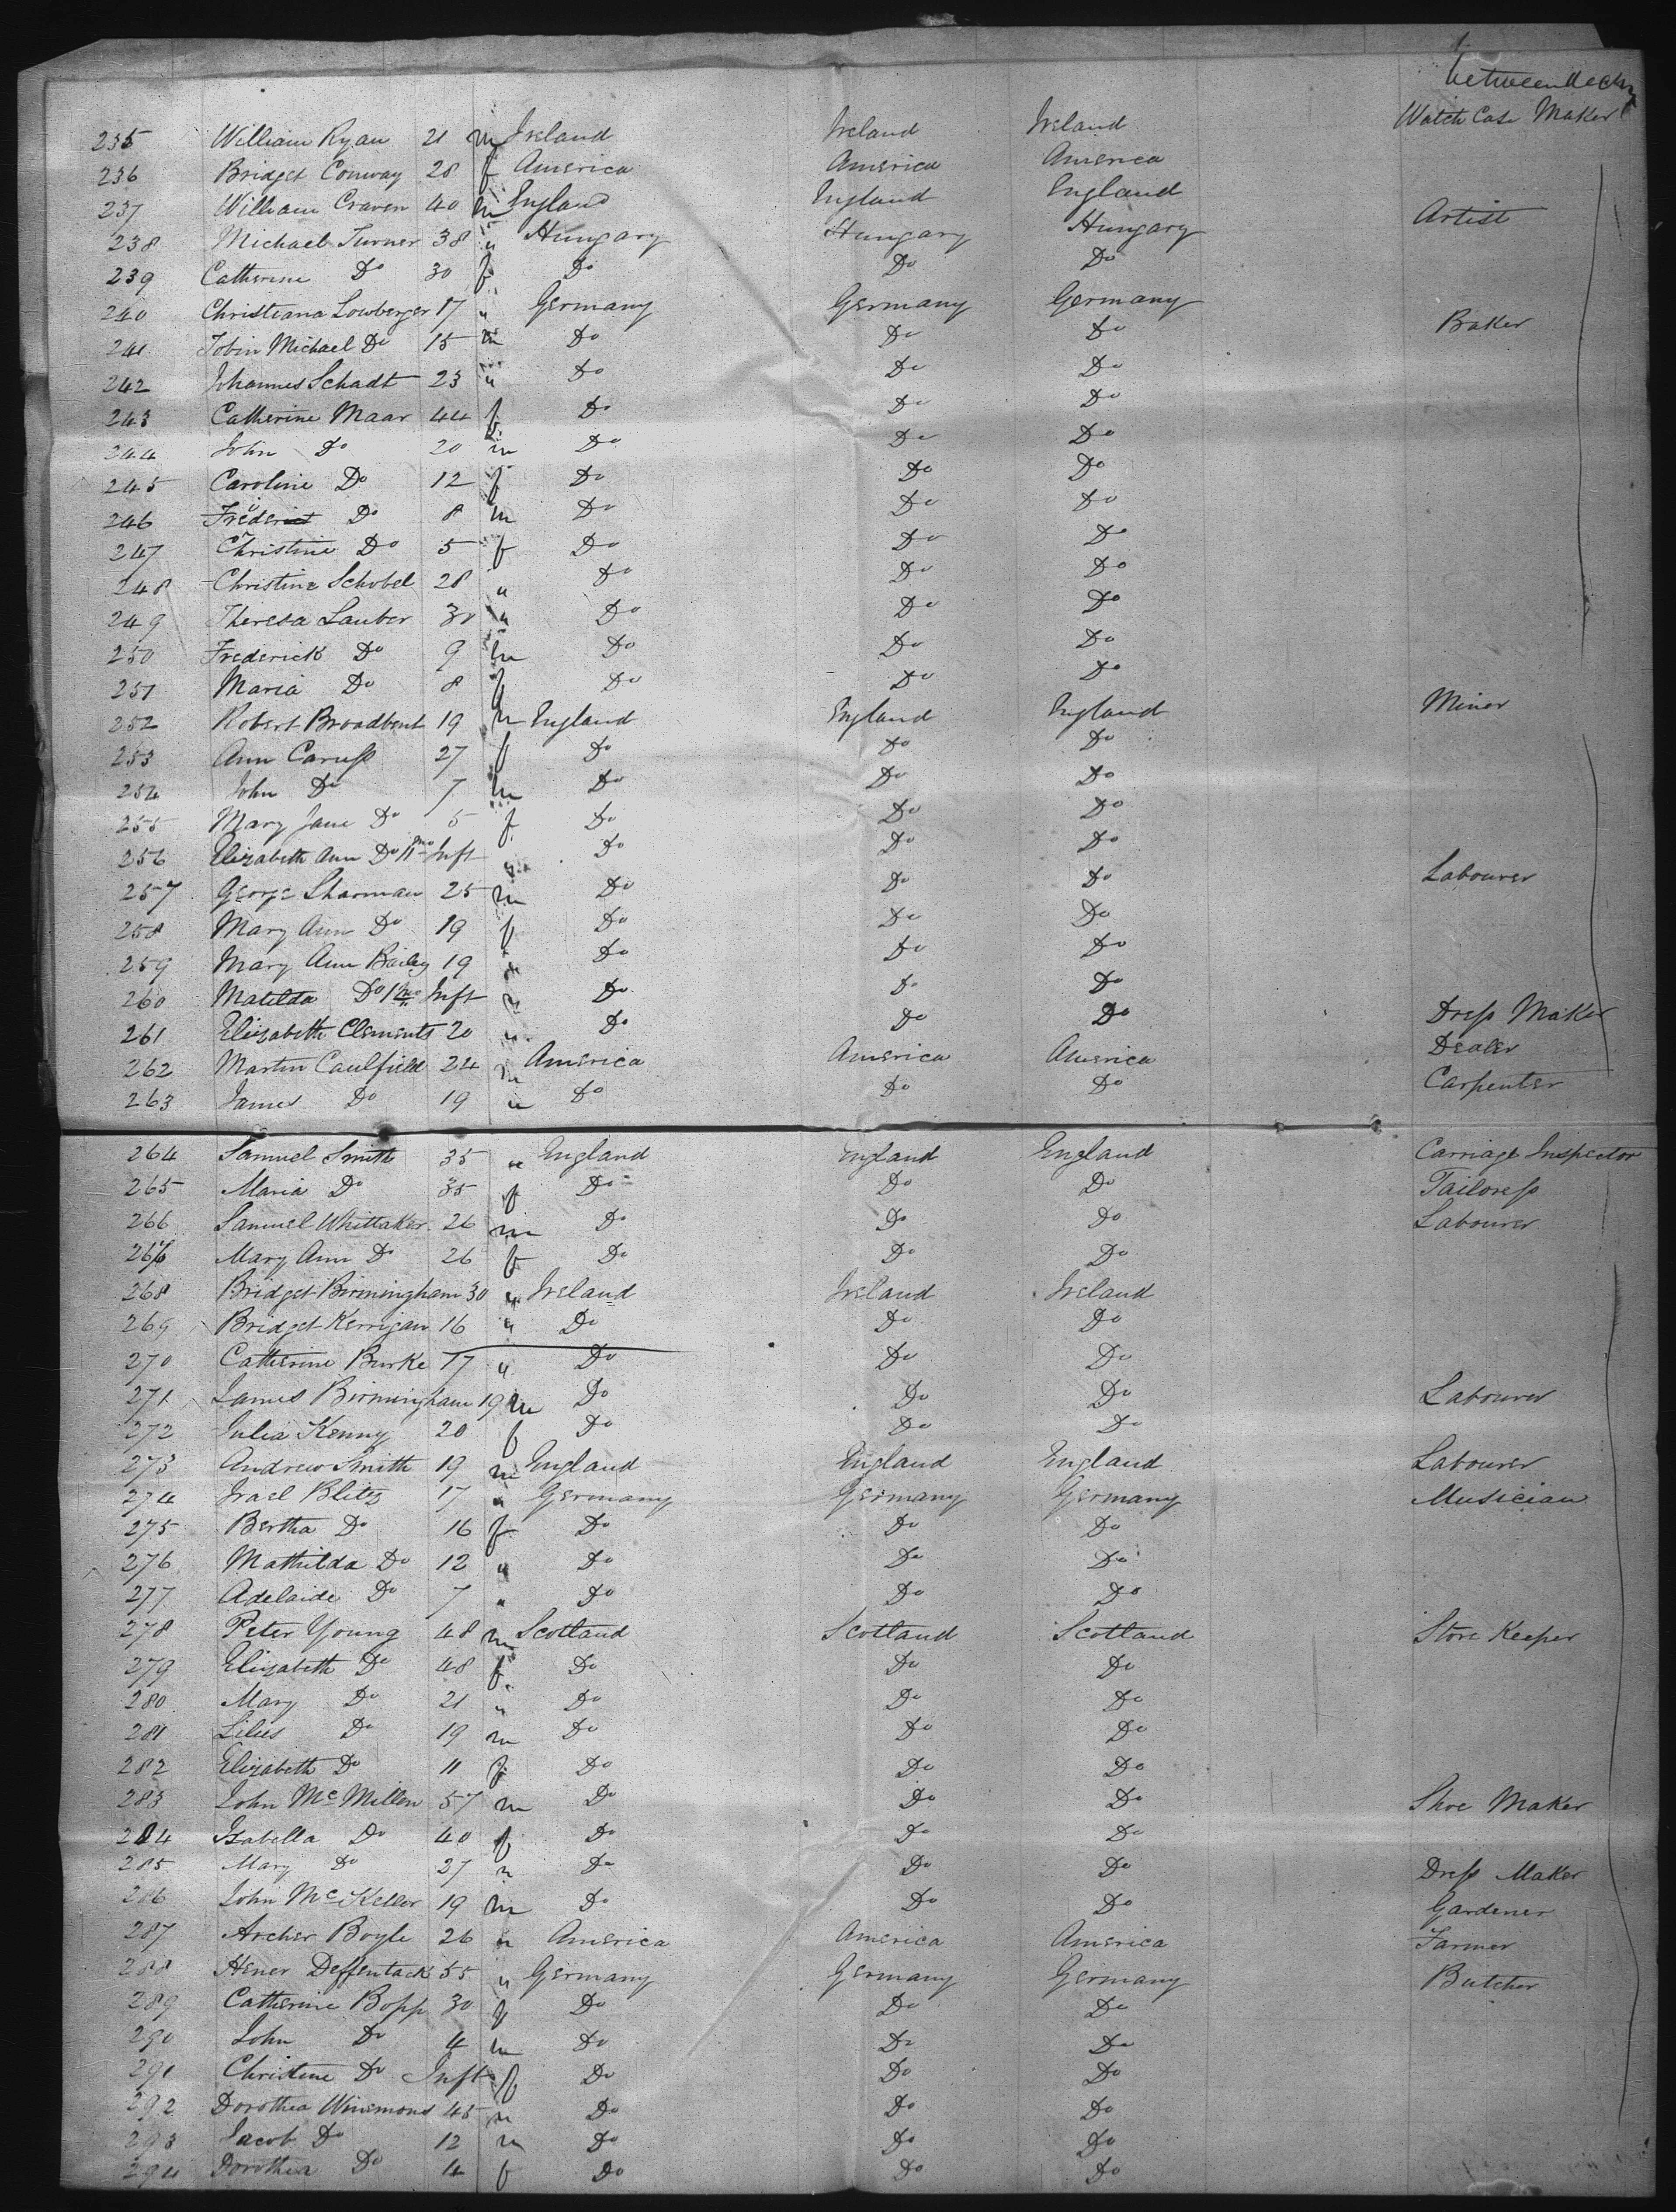 between decks
235 William Ryan 21 m Ireland Ireland Ireland Watch Case Maker
236 Bridget Conway 28 f America America America
237 William Craven 40 m England England England Artist
238 Michael Turner 38 " Hungary Hungary Hungary
239 Catherine Do 30 f Do Do Do
240 Christiana Lowberger 17 " Germany Germany Germany Baker
241 Tobin Michael Do 15 m Do Do Do
242 Johannes Schadt 23 " Do Do Do
243 Catherine Maar 44 f Do Do Do
244 John Do 20 m Do Do Do
245 Caroline Do 12 f Do Do Do
246 Do 8 m Do Do Do
247 Christine Do 5 f Do Do Do
248 Christine Schobel 28 " Do Do Do
249 Theresa Lauber 30 " Do Do Do
250 Frederick Do 9 m Do Do Do
251 Maria Do 8 f Do Do Do
252 Robert Broadbent 19 m England England England Miner
253 Ann Caruss 27 f Do Do Do
254 John Do 7 m Do Do Do
255 Mary Jane Do 5 f Do Do Do
256 Elizabeth Ann Do 11 mo Inft " Do Do Do
257 George Sharman 25 m Do Do Do Labourer
258 Mary Ann Do 19 f Do Do Do
259 Mary Ann Bailey 19 " Do Do Do
260 Matilda Do Inft " Do Do Do
261 Elizabeth Clements 20 " Do Do Do Dress Maker
262 Martin Caulfield 24 m America America America Dealer
263 James Do 19 " Do Do Do Carpenter
264 Samuel Smith 35 " England England England Carriage Inspector
265 Maria Do 35 f Do Do Do Tailoress
266 Samuel Whittaker 26 m Do Do Do Labourer
267 Mary Ann Do 26 f Do Do Do
268 Bridget Birmingham 30 " Ireland Ireland Ireland
269 Bridget Kerrigan 16 " Do Do Do
270 Catherine Burke 17 " Do Do Do
271 James Birmingham 19 m Do Do Do Labourer
272 Julia Kenny 20 f Do Do Do
273 Andrew Smith 19 m England England England Labourer
274 Israel Blitz 17 " Germany Germany Germany Musician
275 Bertha Do 16 f Do Do Do
276 Mathilda Do 12 " Do Do Do
277 Adelaide Do 7 " Do Do Do
278 Peter Young 48 m Scotland Scotland Scotland Store Keeper
279 Elizabeth Do 48 f Do Do Do
280 Mary Do 21 " Do Do Do
281 Lilies Do 19 m Do Do Do
282 Elizabeth Do 11 f Do Do Do
283 John McMillen 57 m Do Do Do Shoe Maker
284 Isabella Do 40 f Do Do Do
285 Mary Do 27 " Do Do Do Dress Maker
286 John McKellor 19 m Do Do Do Gardener
287 Archer Boyle 26 " America America America Farmer
288 Hener Deffentack 55 " Germany Germany Germany Butcher
289 Catherine Bopp 30 f Do Do Do
290 John Do 4 m Do Do Do
291 Christine Do Inft f Do Do Do
292 Dorothea Winsmond 45 " Do Do Do
293 Jacob Do 12 m Do Do Do
294 Dorothea Do 4 f Do Do Do